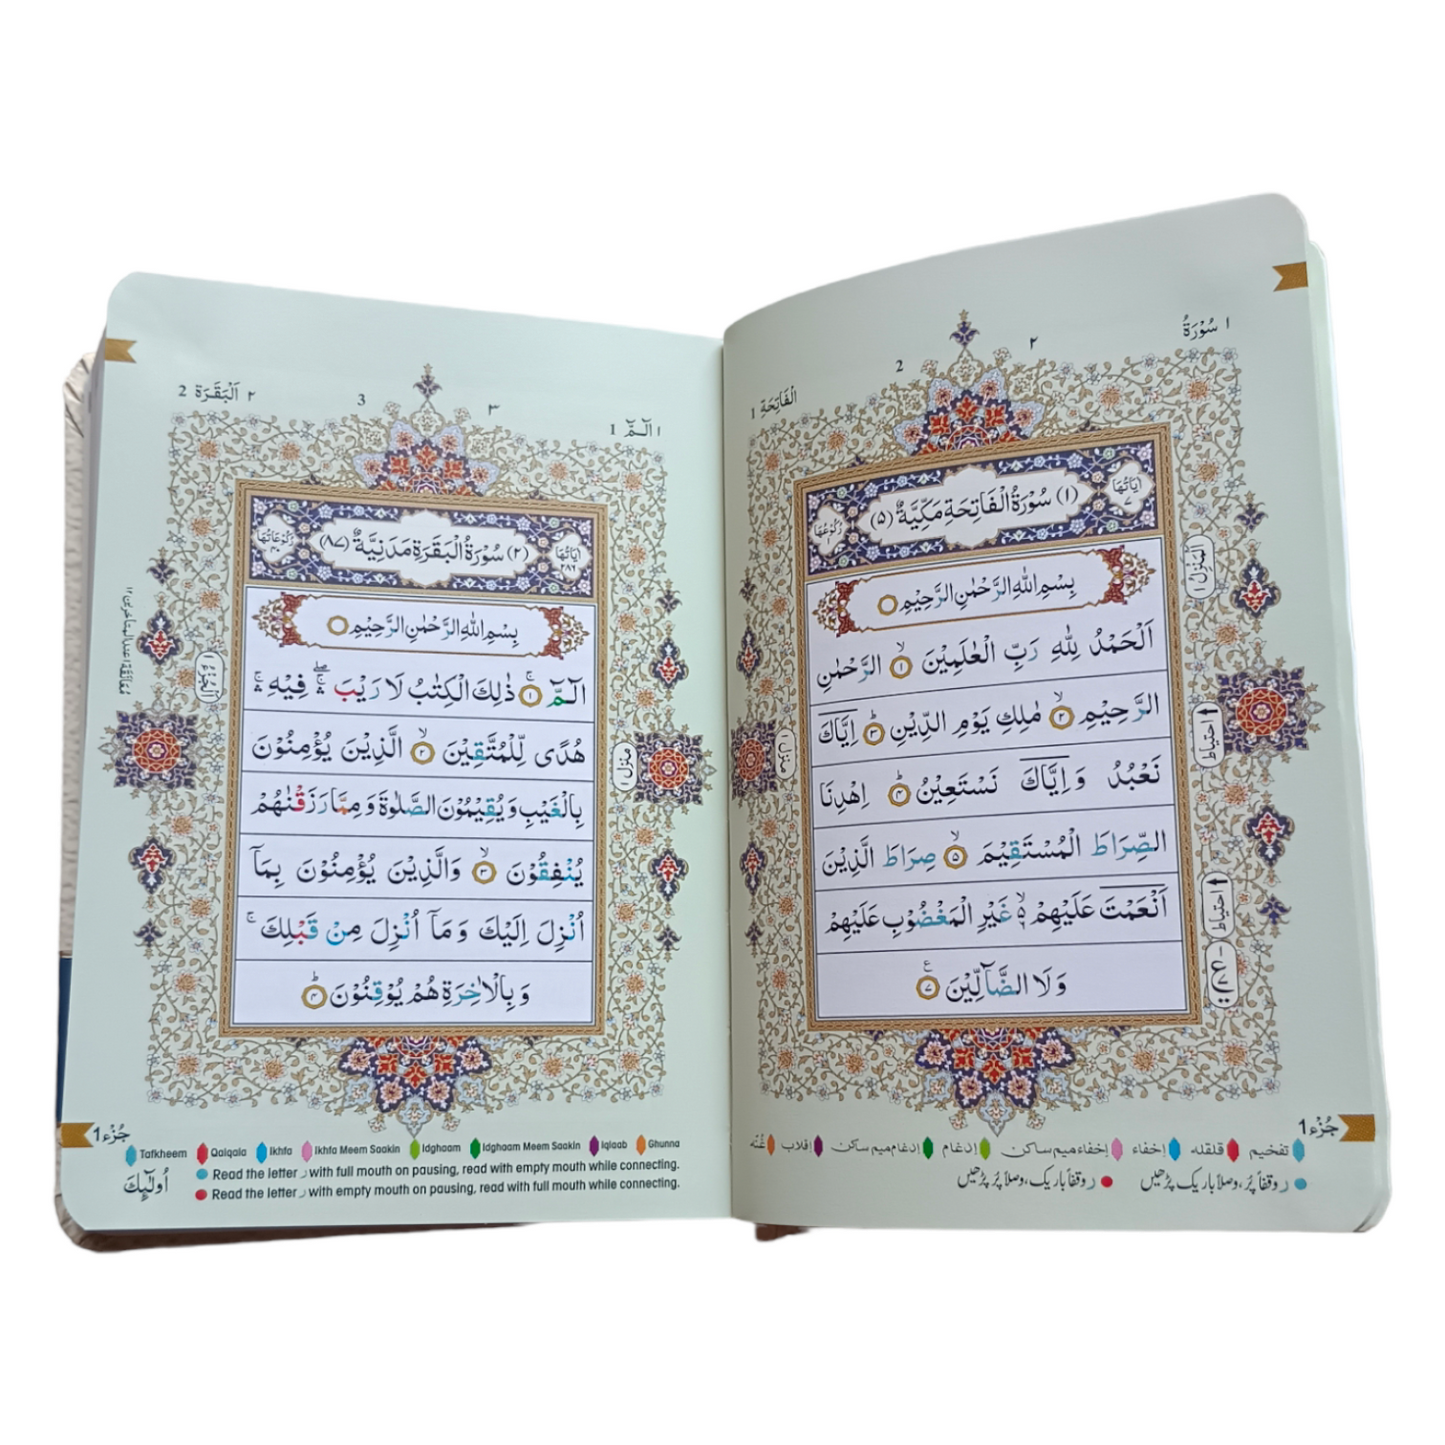 ١ سُوْرَةُ
٢
2
اَلْفَاتِحَة 1
اٰيَاتُهَا ٧
(١) سُوْرَةُ الْفَاتِحَةِ مَكِّيَّةٌ (٥)
رُكُوْعُهَا
بِسْمِ اللّٰهِ الرَّحْمٰنِ الرَّحِيْمِ
اَلْحَمْدُ لِلّٰهِ رَبِّ الْعٰلَمِيْنَ ۙ١ الرَّحْمٰنِ
الرَّحِيْمِ ۙ٢ مٰلِكِ يَوْمِ الدِّيْنِ ؕ٣ اِيَّاكَ
نَعْبُدُ وَاِيَّاكَ نَسْتَعِيْنُ ؕ٤ اِهْدِنَا
الصِّرَاطَ الْمُسْتَقِيْمَ ۙ٥ صِرَاطَ الَّذِيْنَ
اَنْعَمْتَ عَلَيْهِمْ ۙ۬ۦ غَيْرِ الْمَغْضُوْبِ عَلَيْهِمْ
وَلَا الضَّآلِّيْنَ ٧
اَلْمَنْزِلُ ١
احتیاط
احتیاط
منزل ١
جُزْء 1
تفخیم قلقله إخفاء إخفاء میم ساکن إدغام إدغام میم ساکن إقلاب غُنّه
ر وقفاً پُر، وصلاً باریک پڑھیں ر وقفاً باریک، وصلاً پُر پڑھیں
١ الٓمّٓ 1
٣
3
٢ اَلْبَقَرَة 2
اٰيَاتُهَا ٢٨٦
(٢) سُوْرَةُ الْبَقَرَةِ مَدَنِيَّةٌ (٨٧)
رُكُوْعَاتُهَا ٤٠
بِسْمِ اللّٰهِ الرَّحْمٰنِ الرَّحِيْمِ
الٓمّٓ ۚ١ ذٰلِكَ الْكِتٰبُ لَا رَيْبَ ۖۛ فِيْهِ ۚۛ
هُدًى لِّلْمُتَّقِيْنَ ۙ٢ الَّذِيْنَ يُؤْمِنُوْنَ
بِالْغَيْبِ وَيُقِيْمُوْنَ الصَّلٰوةَ وَمِمَّا رَزَقْنٰهُمْ
يُنْفِقُوْنَ ۙ٣ وَالَّذِيْنَ يُؤْمِنُوْنَ بِمَآ
اُنْزِلَ اِلَيْكَ وَمَآ اُنْزِلَ مِنْ قَبْلِكَ ۚ
وَبِالْاٰخِرَةِ هُمْ يُوْقِنُوْنَ ؕ٤
منزل ١
اَلْجُزْءُ ١
جُزْء 1
Tafkheem Qalqala Ikhfa Ikhfa Meem Saakin Idghaam Idghaam Meem Saakin Iqlaab Ghunna
Read the letter ر with full mouth on pausing, read with empty mouth while connecting.
Read the letter ر with empty mouth on pausing, read with full mouth while connecting.
اُولٰٓئِكَ